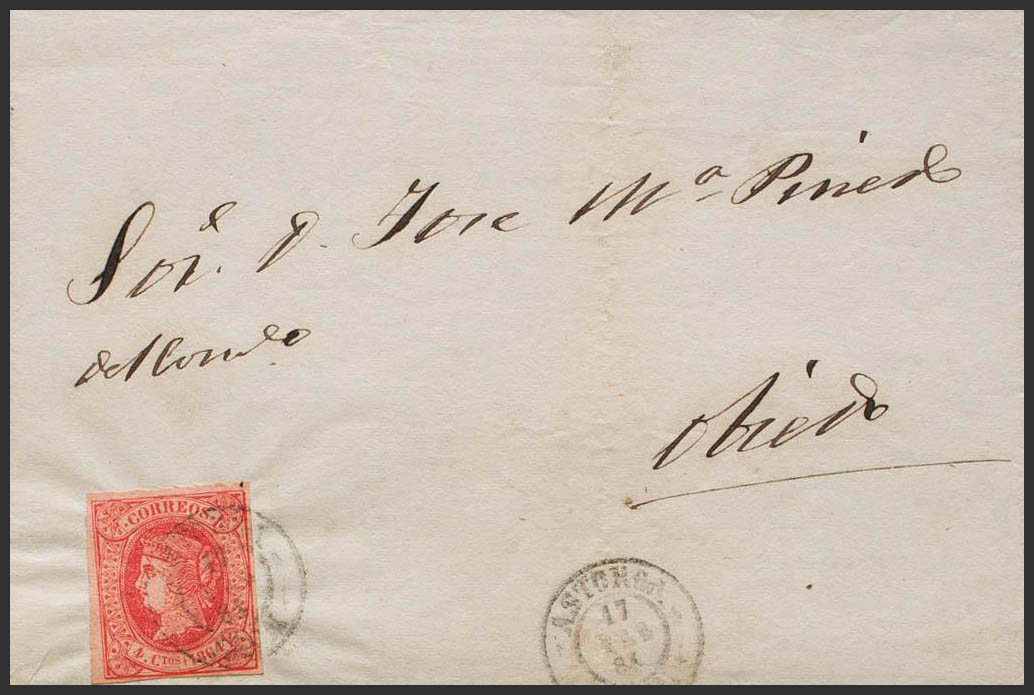 Sor. d. D. Jose Ma Pinedo
del Comercio
Obiedo
CORREOS
4 Ctos 1864
ASTORGA
17